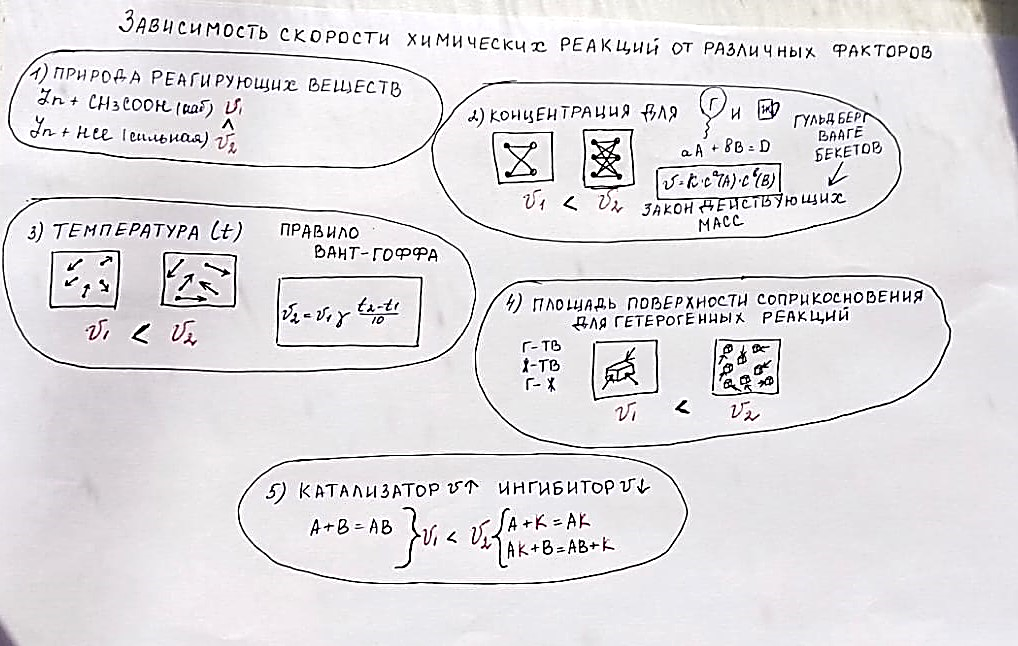 ЗАВИСИМОСТЬ СКОРОСТИ ХИМИЧЕСКИХ РЕАКЦИЙ ОТ РАЗЛИЧНЫХ ФАКТОРОВ
1) ПРИРОДА РЕАГИРУЮЩИХ ВЕЩЕСТВ
Zn + CH3COOH (слаб) v1
^
Zn + HCl (сильная) v2
2) КОНЦЕНТРАЦИЯ ДЛЯ Г И Ж
aA + вB = D
v = k · c^a(A) · c^в(B)
v1 < v2
ГУЛЬДБЕРГ
ВААГЕ
БЕКЕТОВ
ЗАКОН ДЕЙСТВУЮЩИХ
МАСС
3) ТЕМПЕРАТУРА (t)
v1 < v2
ПРАВИЛО
ВАНТ-ГОФФА
v2 = v1 γ t2-t1/10
4) ПЛОЩАДЬ ПОВЕРХНОСТИ СОПРИКОСНОВЕНИЯ
ДЛЯ ГЕТЕРОГЕННЫХ РЕАКЦИЙ
Г-ТВ
Ж-ТВ
Г-Ж
v1 < v2
5) КАТАЛИЗАТОР v↑ ИНГИБИТОР v↓
A + B = AB } v1 < v2 { A + K = AK
AK + B = AB + K